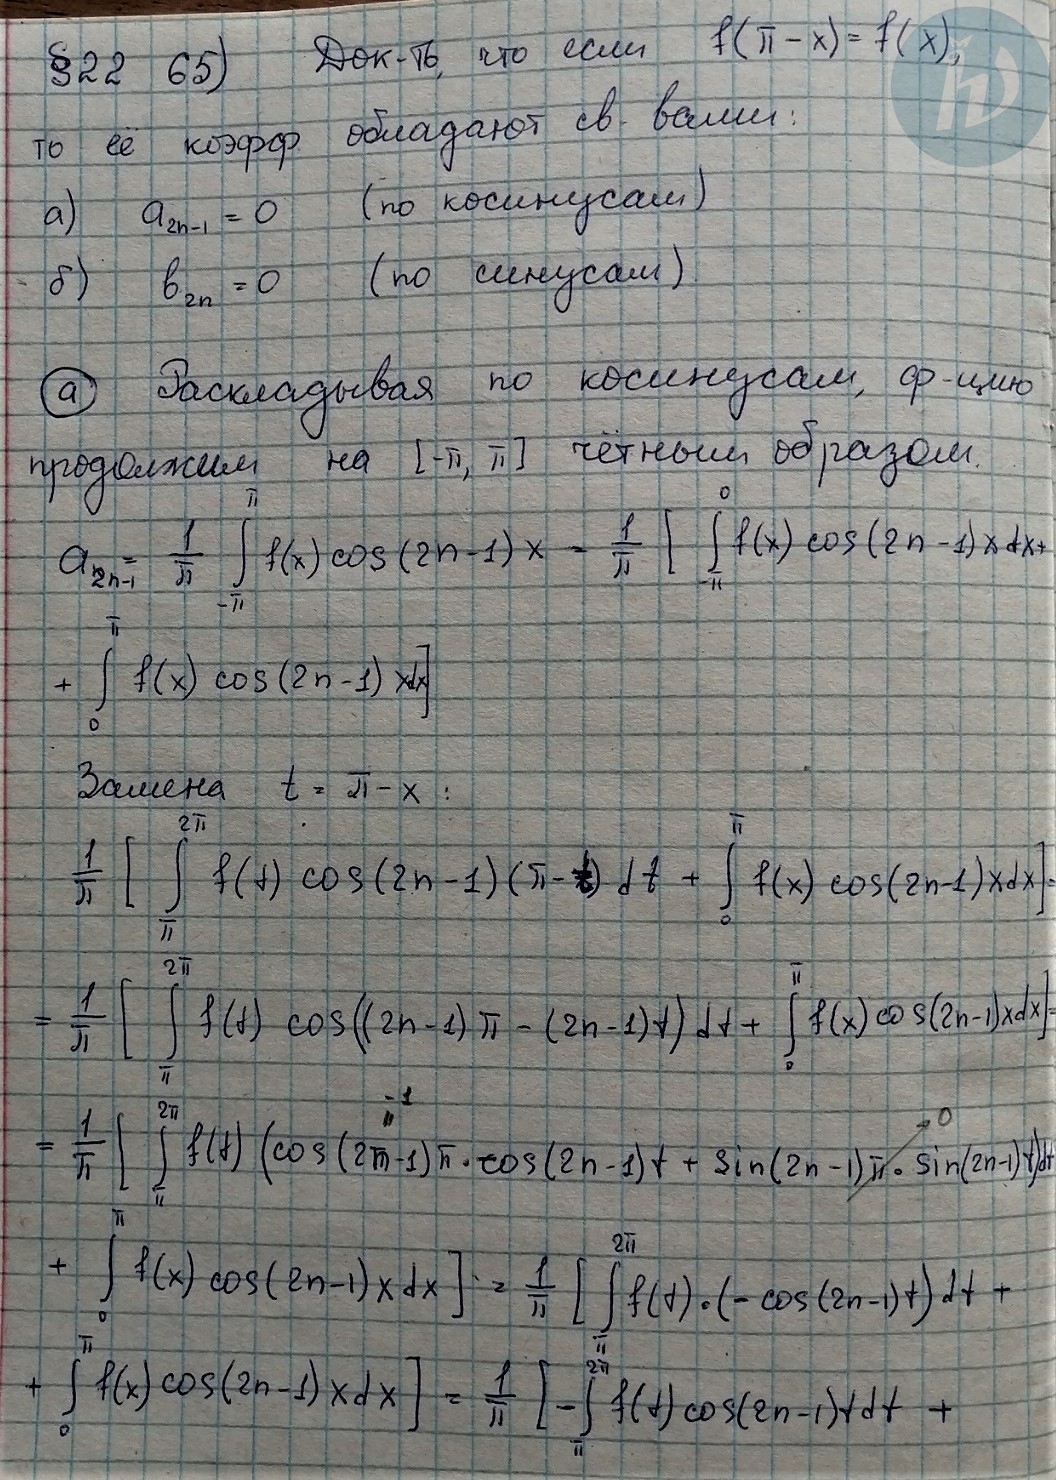 §22 65) Док-ть, что если f(π-x)=f(x),
то её коэфф обладают св-вами:
а) a_{2n-1} = 0 (по косинусам)
б) b_{2n} = 0 (по синусам)
ⓐ Раскладывая по косинусам, ф-цию
продолжим на [-π, π] чётным образом.
a_{2n-1} = 1/π ∫_{-π}^{π} f(x) cos(2n-1)x = 1/π [ ∫_{-π}^{0} f(x) cos(2n-1)x dx +
+ ∫_{0}^{π} f(x) cos(2n-1)x dx]
Замена t = π - x :
1/π [ ∫_{π}^{2π} f(t) cos(2n-1)(π-t) dt + ∫_{0}^{π} f(x) cos(2n-1)x dx] =
= 1/π [ ∫_{π}^{2π} f(t) cos((2n-1)π - (2n-1)t) dt + ∫_{0}^{π} f(x) cos(2n-1)x dx] =
-1
= 1/π [ ∫_{π}^{2π} f(t) (cos(2n-1)π · cos(2n-1)t + sin(2n-1)π · sin(2n-1)t) dt
0
+ ∫_{0}^{π} f(x) cos(2n-1)x dx ] = 1/π [ ∫_{π}^{2π} f(t) · (-cos(2n-1)t) dt +
+ ∫_{0}^{π} f(x) cos(2n-1)x dx ] = 1/π [ - ∫_{π}^{2π} f(t) cos(2n-1)t dt +